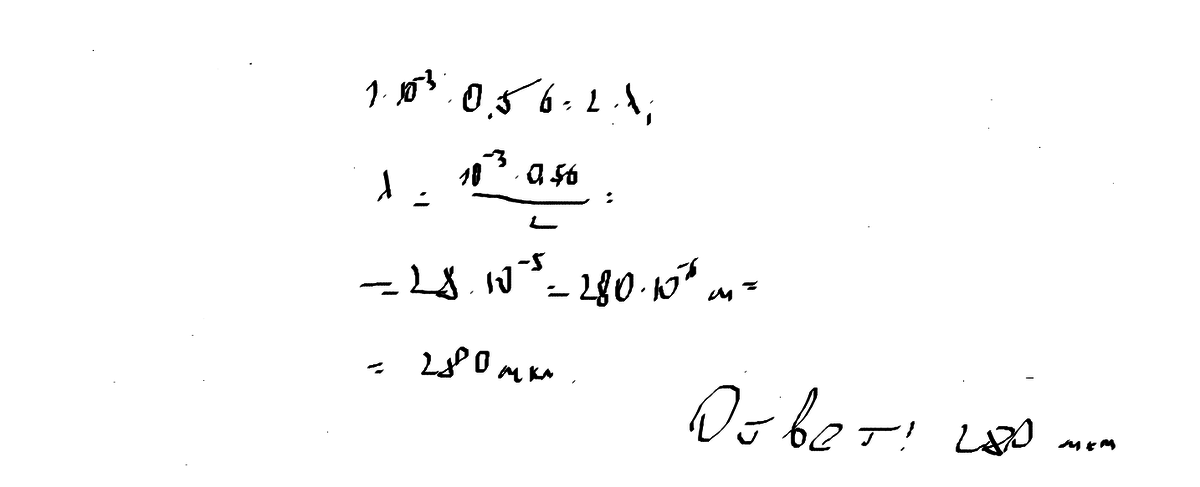 1·10⁻³·0,56=2·λ;
λ = 10⁻³·0,56 / 2 =
= 28·10⁻⁵ = 280·10⁻⁶ м =
= 280 мкм.
Ответ: 280 мкм